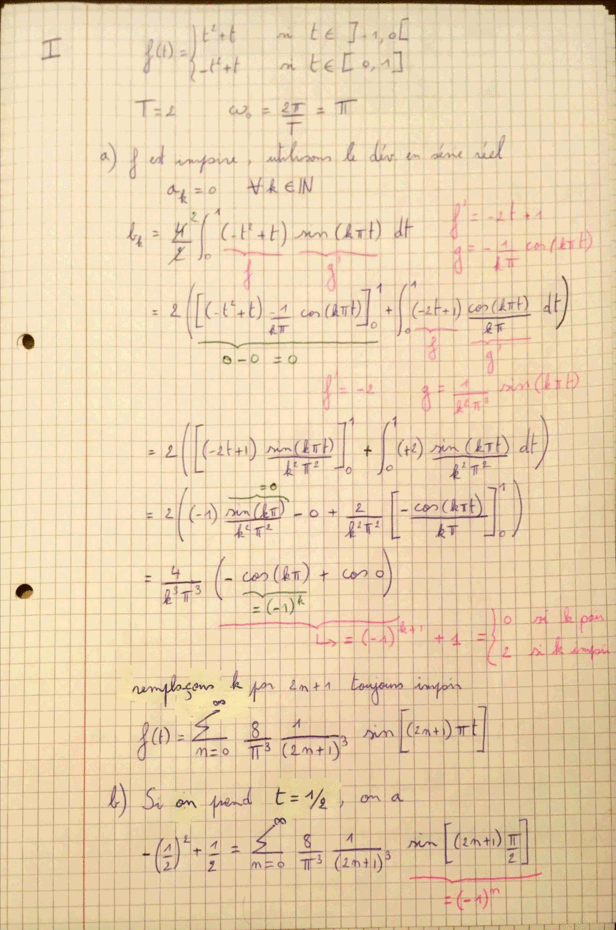 I
f(t) = { t² + t si t ∈ ]-1, 0[
-t² + t si t ∈ [0, 1]
T = 2 ω₀ = 2π/T = π
a) f est impaire, utilisons le dév en série réel
a_k = 0 ∀ k ∈ ℕ
b_k = 4/2 ∫₀¹ (-t² + t) sin(kπt) dt
2
f g'
f' = -2t + 1
g = -1/kπ cos(kπt)
= 2 ( [(-t² + t) -1/kπ cos(kπt)]₀¹ + ∫₀¹ (-2t+1) cos(kπt)/kπ dt )
0 - 0 = 0
f g'
f' = -2 g = 1/k²π² sin(kπt)
= 2 ( [(-2t+1) sin(kπt)/k²π²]₀¹ + ∫₀¹ (+2) sin(kπt)/k²π² dt )
= 0
= 2 ( (-1) sin(kπ)/k²π² - 0 + 2/k²π² [-cos(kπt)/kπ]₀¹ )
= 4/k³π³ ( - cos(kπ) + cos 0 )
= (-1)^k
↳ = (-1)^(k+1) + 1 = { 0 si k pair
2 si k impair
remplaçons k par 2n+1 toujours impair
f(t) = ∑_{n=0}^∞ 8/π³ 1/(2n+1)³ sin[(2n+1)πt]
b) Si on prend t = 1/2, on a
-(1/2)² + 1/2 = ∑_{n=0}^∞ 8/π³ 1/(2n+1)³ sin[(2n+1) π/2]
= (-1)^n